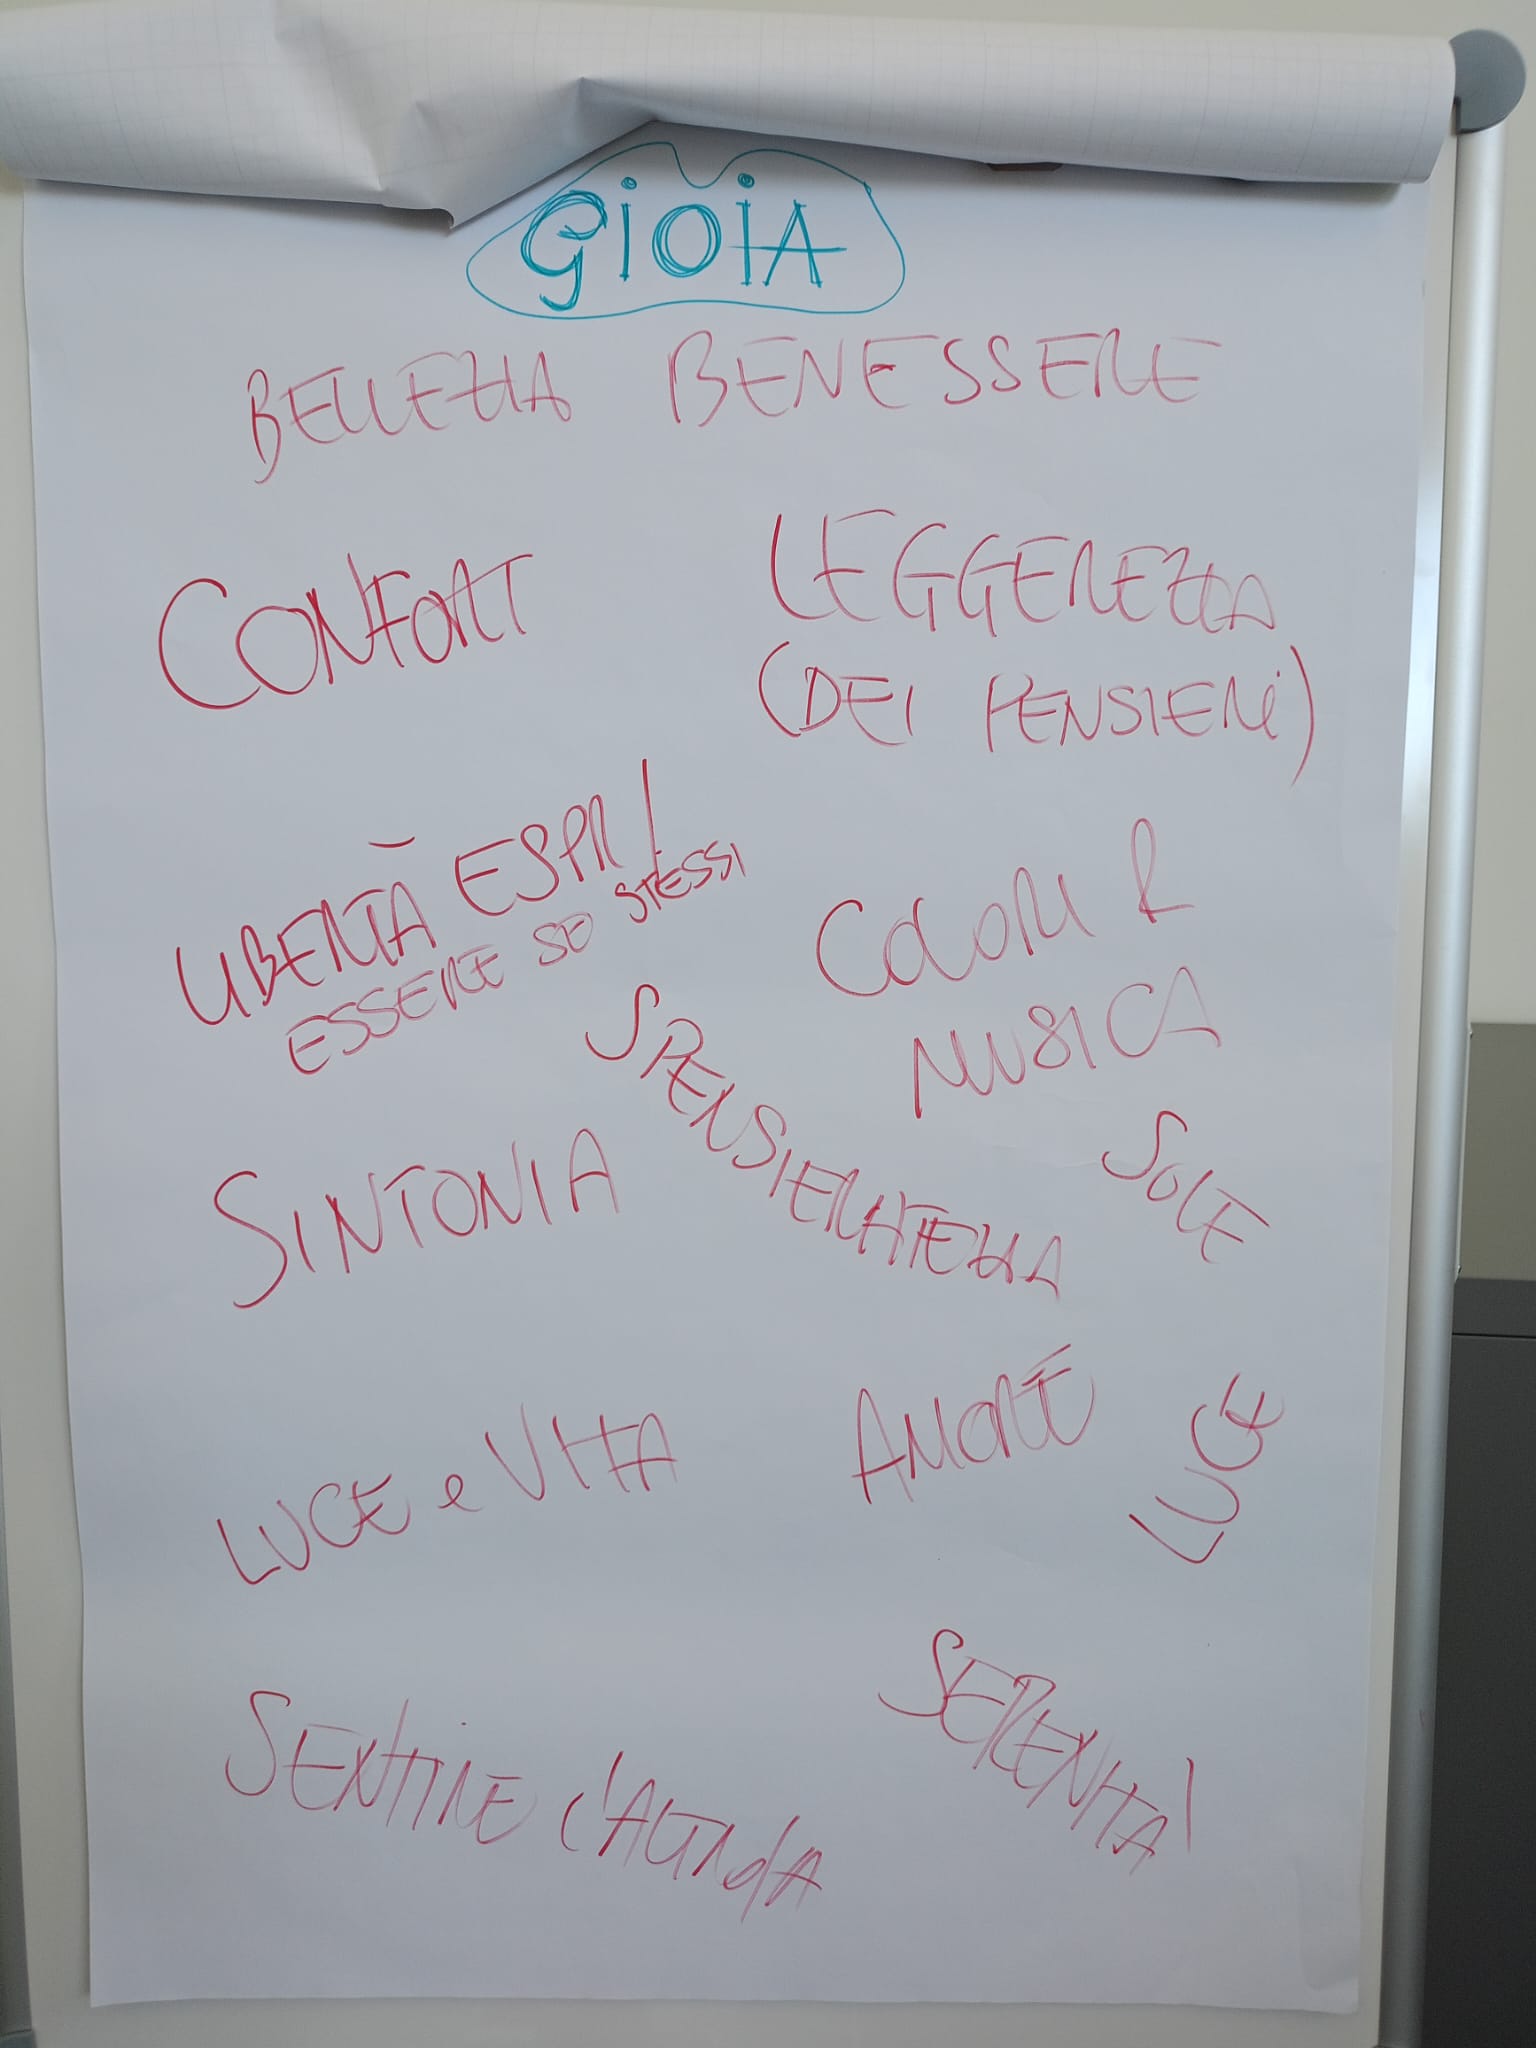 GIOIA
BELLEZZA BENESSERE
CONFORT
LEGGEREZZA
(DEI PENSIERI)
LIBERTÀ ESPR/
ESSERE SE STESSI
COLORI e
MUSICA
SPENSIERATEZZA
SOLE
SINTONIA
AMORE
LUCE
LUCE e VITA
SERENITA'
SENTIRE L'ALTRO/A